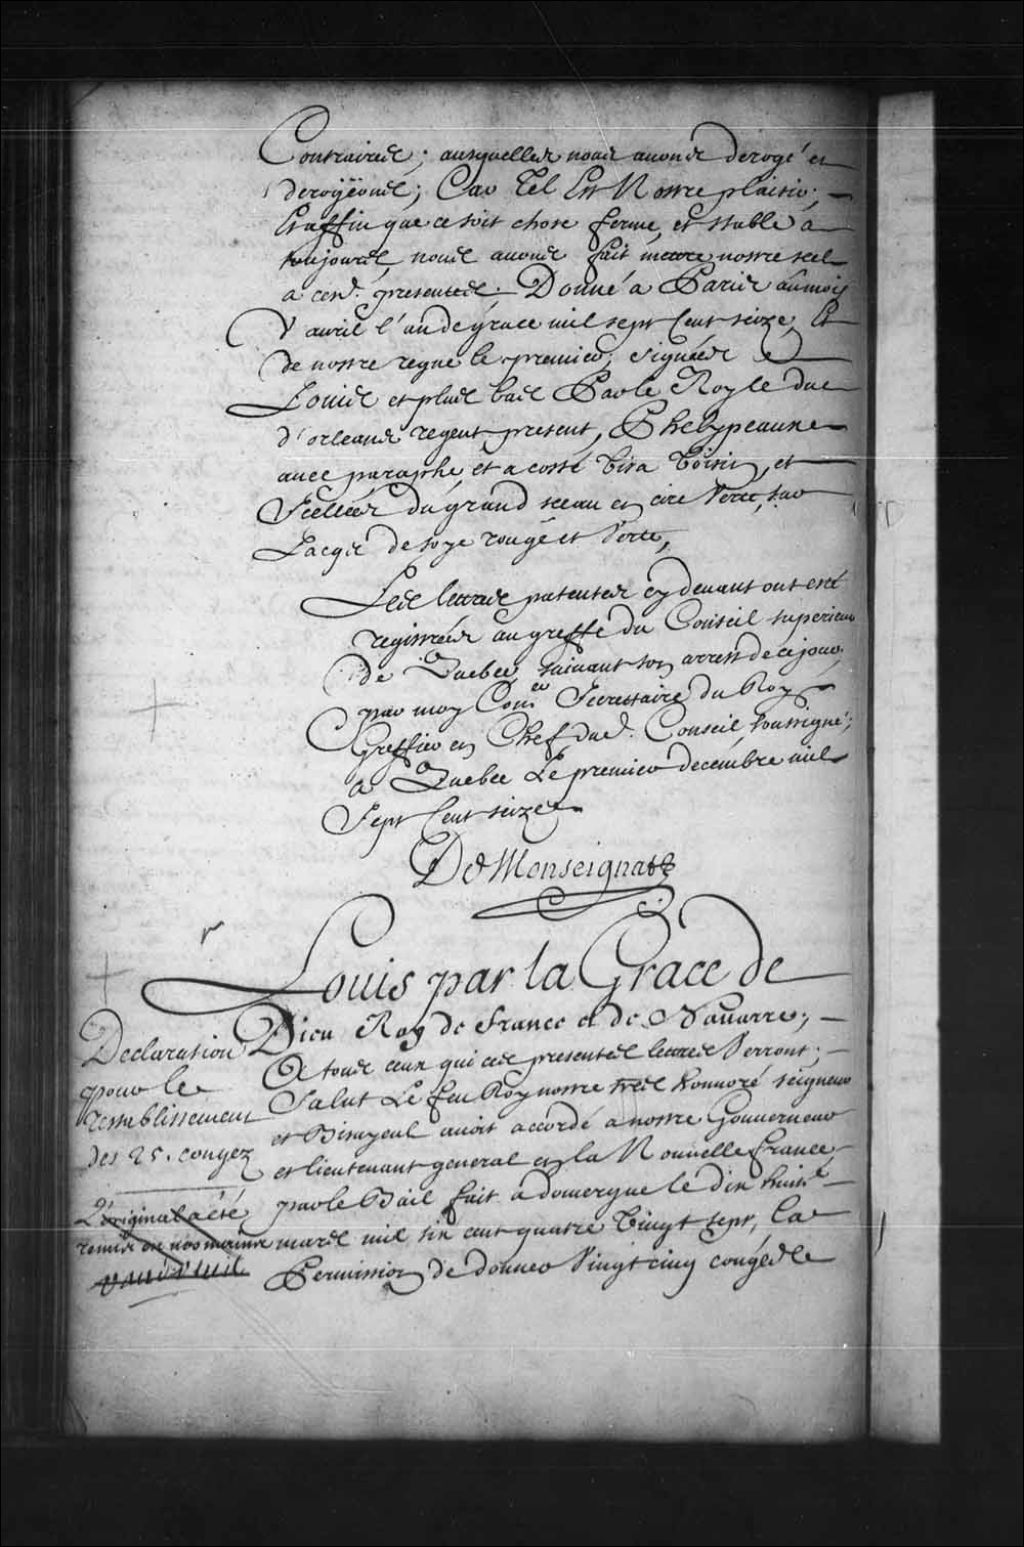 Contraires; ausquelles nous auons derogé et
derogëons; Car Tel Est Nostre plaisir;
Et affin que ce soit chose ferme, et stable a
toujours, nous auons fait mettre nostre scel
a cesd. presentes; Donné a Paris au mois
d'auril l'an de grace mil sept Cent seize, Et
de nostre regne le premier; signées
Louis et plus bas Par le Roy le duc
d'orleans regent present, Phelypeaux
auec paraphe, et a costé visa voisin, et
scellées du grand sceau en cire verte, sur
Lacqs de soye rouge et verte,
Les lettres patentes cy deuant ont esté
registrées au greffe du Conseil superieur
de Quebec, suiuant son arrest de ce jour,
par moy Con.er Secretaire du Roy
Greffier en Chef dud. Conseil soussigné;
a Quebec Le premier decembre mil
Sept Cent seize
DeMonseignat
Louis par la Grace de
Dieu Roy de france et de Nauarre;
A tous ceux qui ces presentes lettres verront;
Salut Le feu Roy nostre tres honnoré seigneur
et Bisayeul auoit accordé a nostre Gouuerneur
et lieutenant general en la Nouuelle france,
par le Bail fait a domergue le dix huit.e
mars mil six cent quatre vingt sept, La
Permission de donner vingt cinq congés le
Declaration
pour le
restablissement
des 25. congez
L'original a été
remis en nos mains
vaudreuil